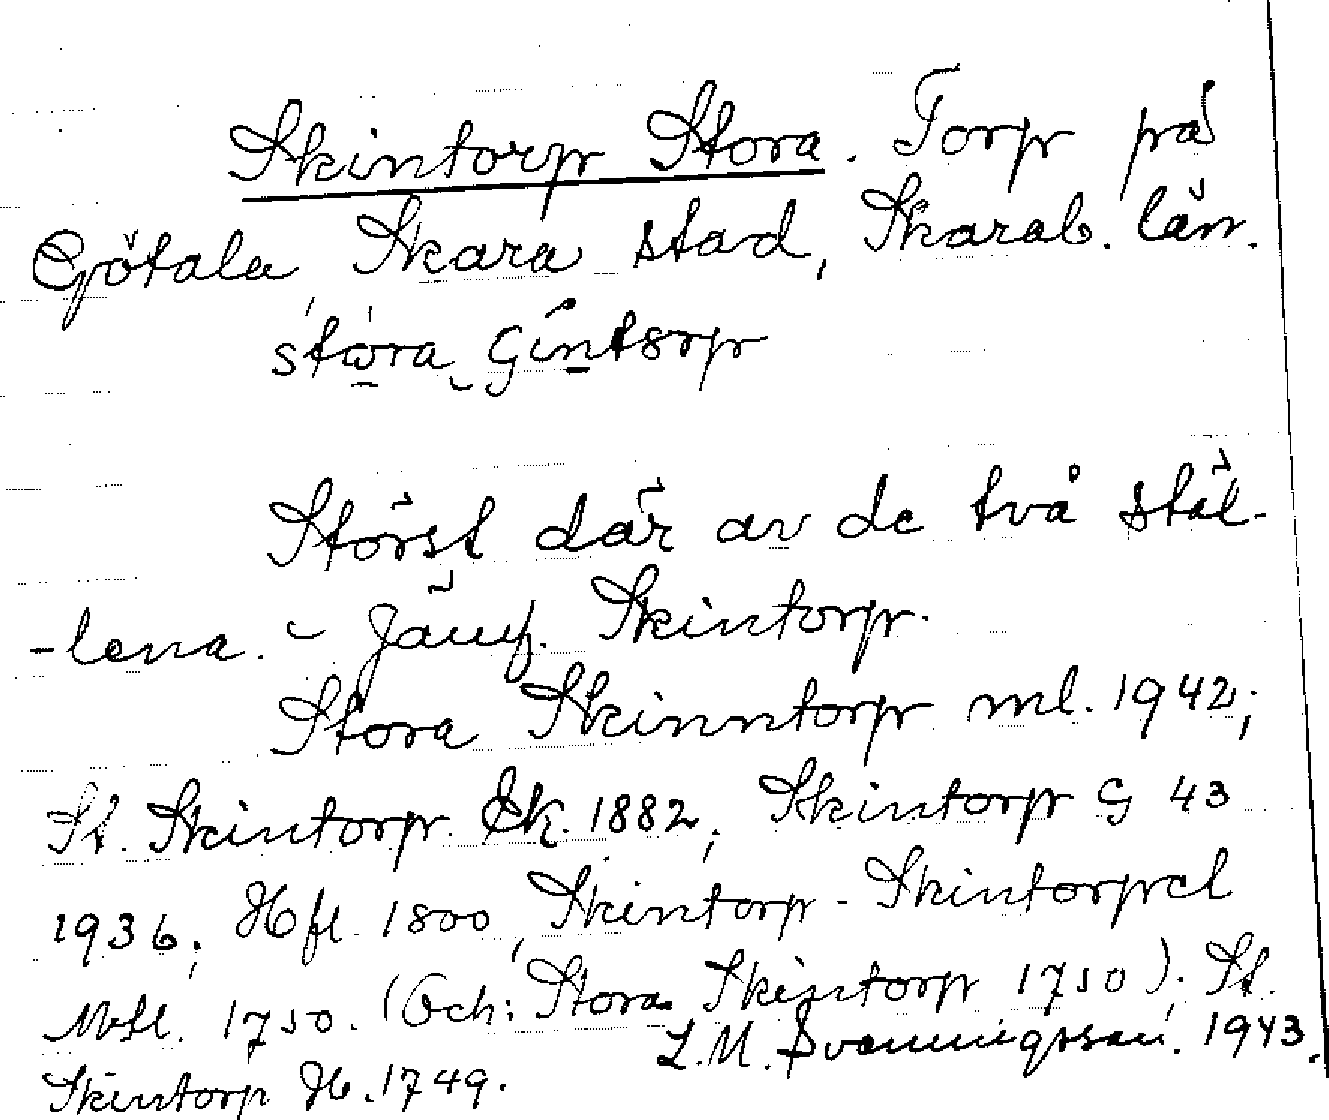 Skintorp Stora. Torp på
Götala, Skara stad, Skarab. län.
stora Gintorp
Störst där av de två stäl-
-lena. - Jämf. Skintorp.
Stora Skinntorp ml. 1942;
St. Skintorp Ek. 1882; Skintorp G 43
1936; Hfl 1800, Skintorp - Skintorpel
Mtl. 1750. (Och: Stora Skintorp 1750); St.
Skintorp Jb. 1749.
L.M. Svenningsson. 1943.